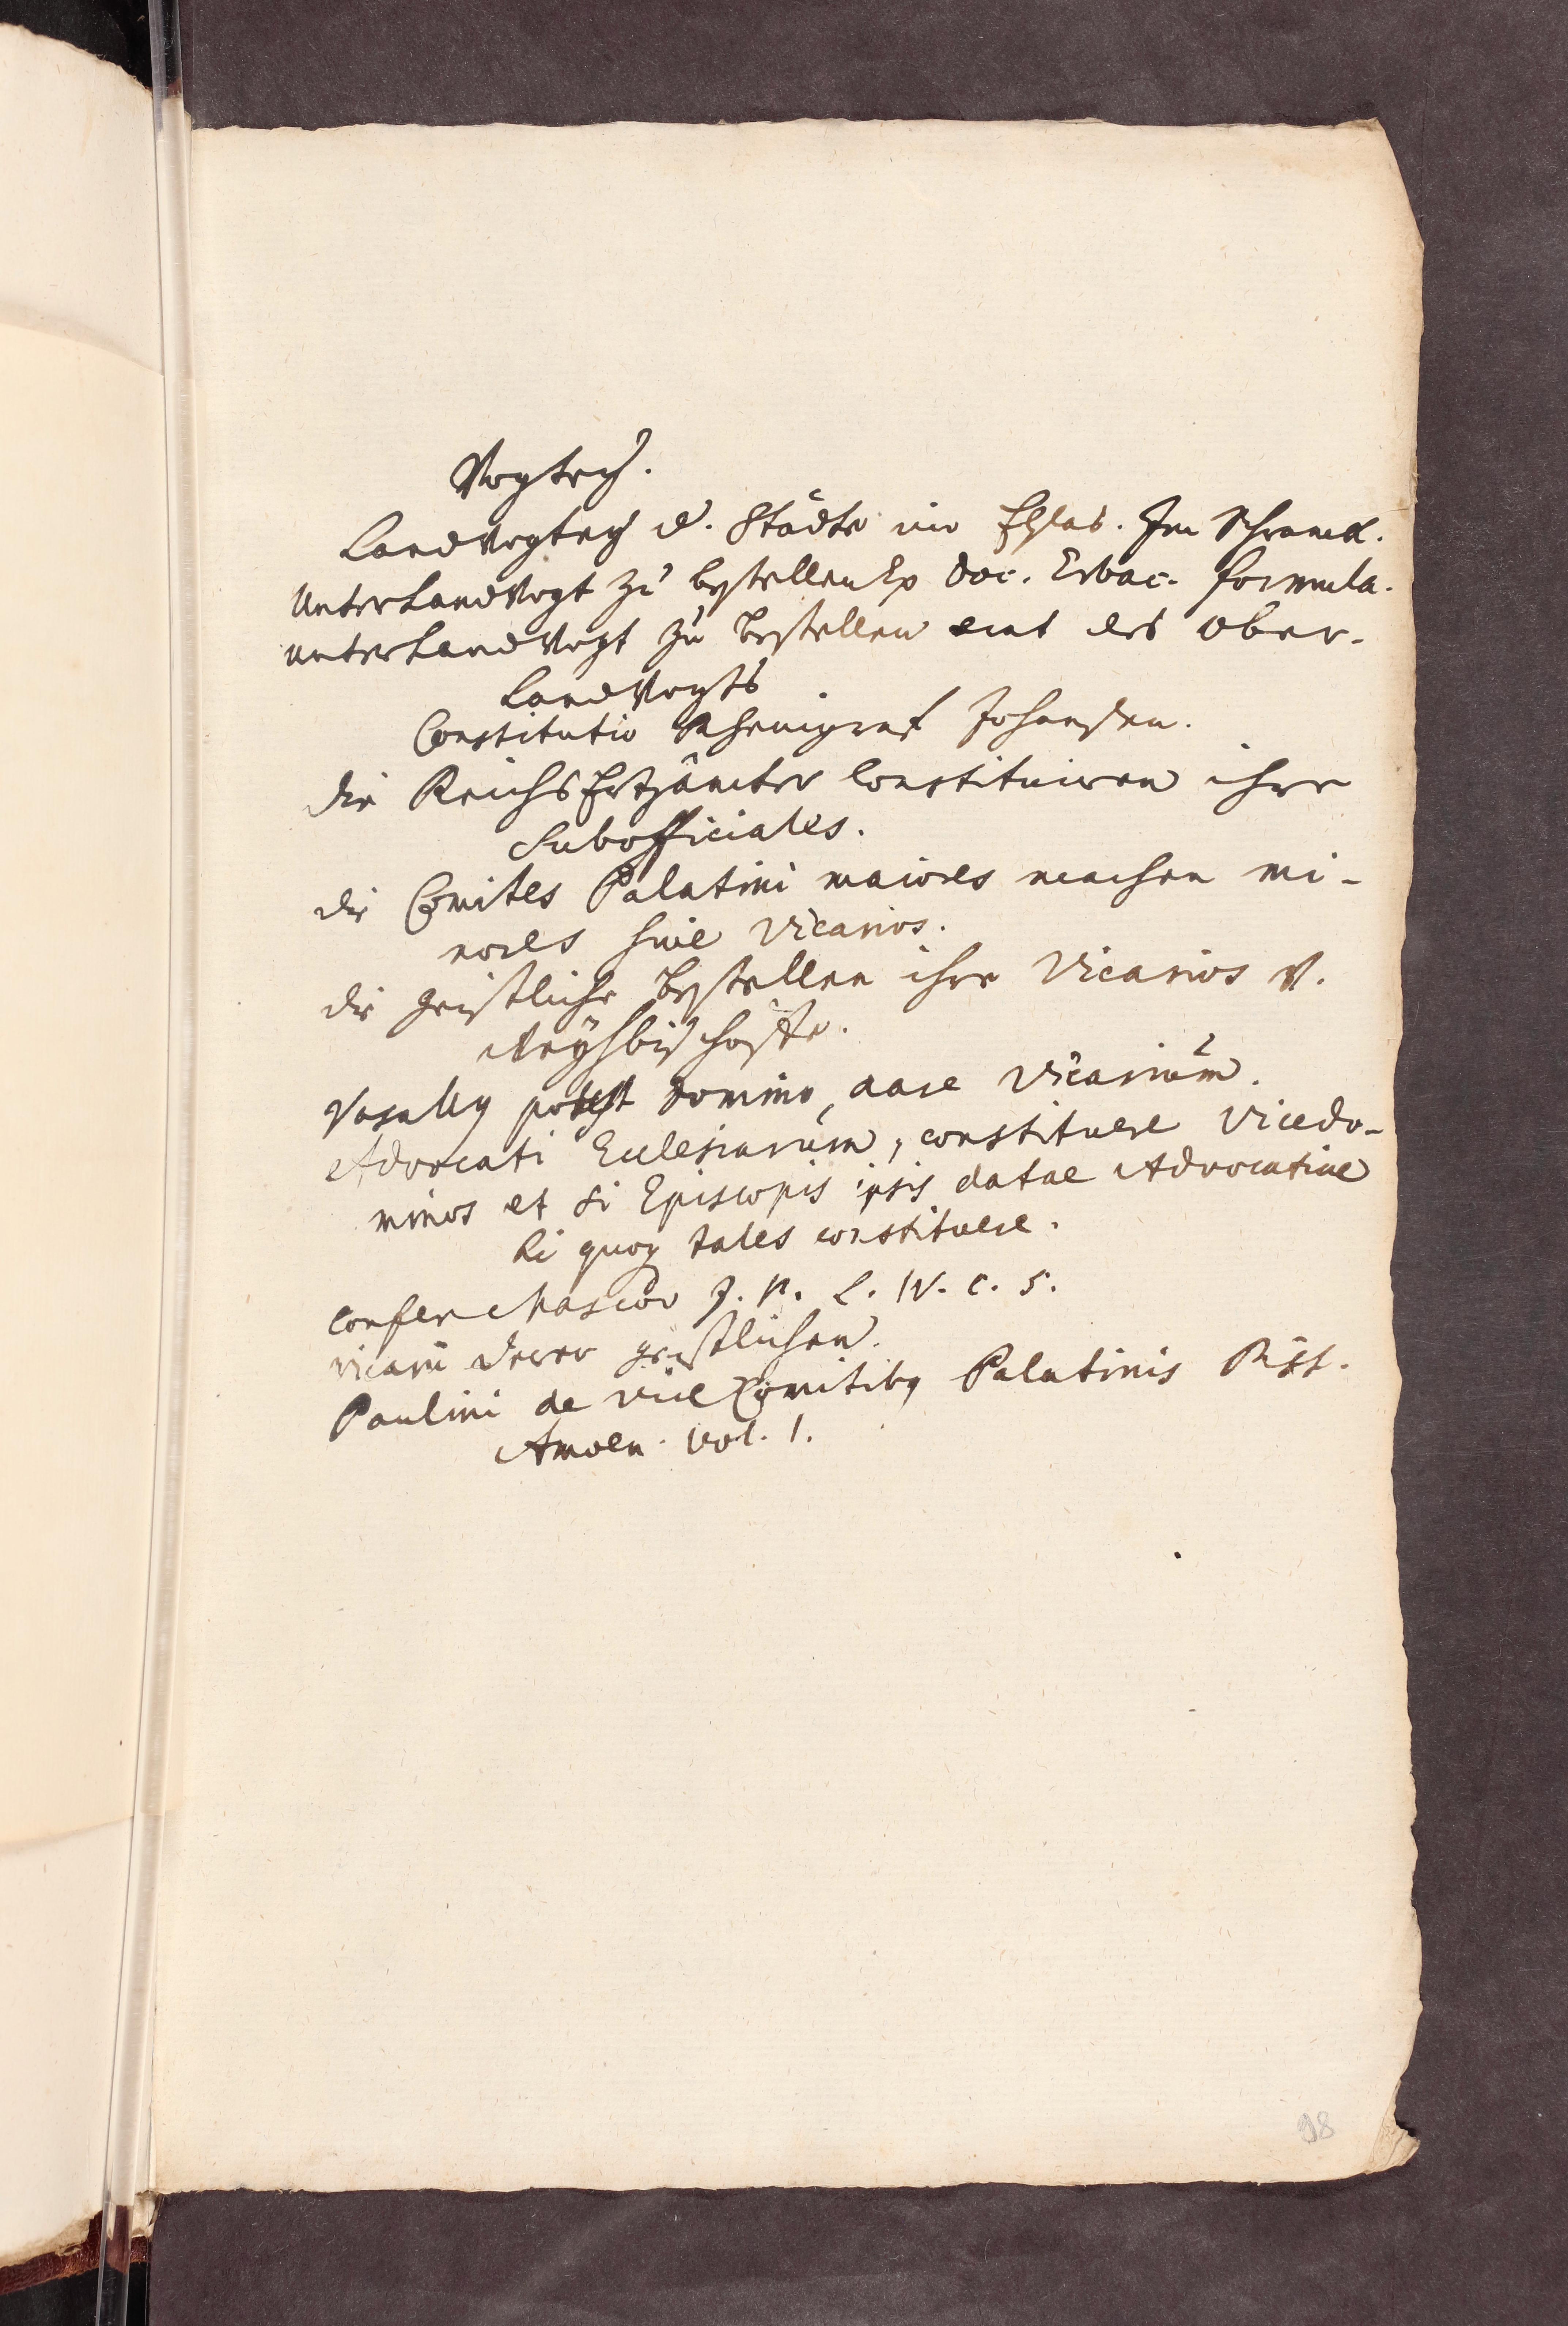 Vogtey.
LandVogtey d. Städte im Elsas. Im Schranck.
UnterLandVogt zu bestellen Ex doc. Erbac. formula.
unterLandVogt zu bestellen amt des Ober-
LandVogts
Constitutio Rheingraf Johansen.
die ReichsErtzämter constituiren ihre
Subofficiales.
die Comites Palatini maiores machen mi-
nores sive Vicarios.
die geistliche bestellen ihre Vicarios v.
Weyhbischoffe.
Vasallus potest domino dare Vicarium.
Advocati Ecclesiarum, constituere Vicedo-
minos et si Episcopis ipsis datae Advocatiae
hi quoq tales constituere.
confer Mascov J. P. L. IV. c. 5.
vicarii derer geistlichen.
Paulini de Vice Comitibq Palatinis Diss.
Amoen. Vol. 1.
98